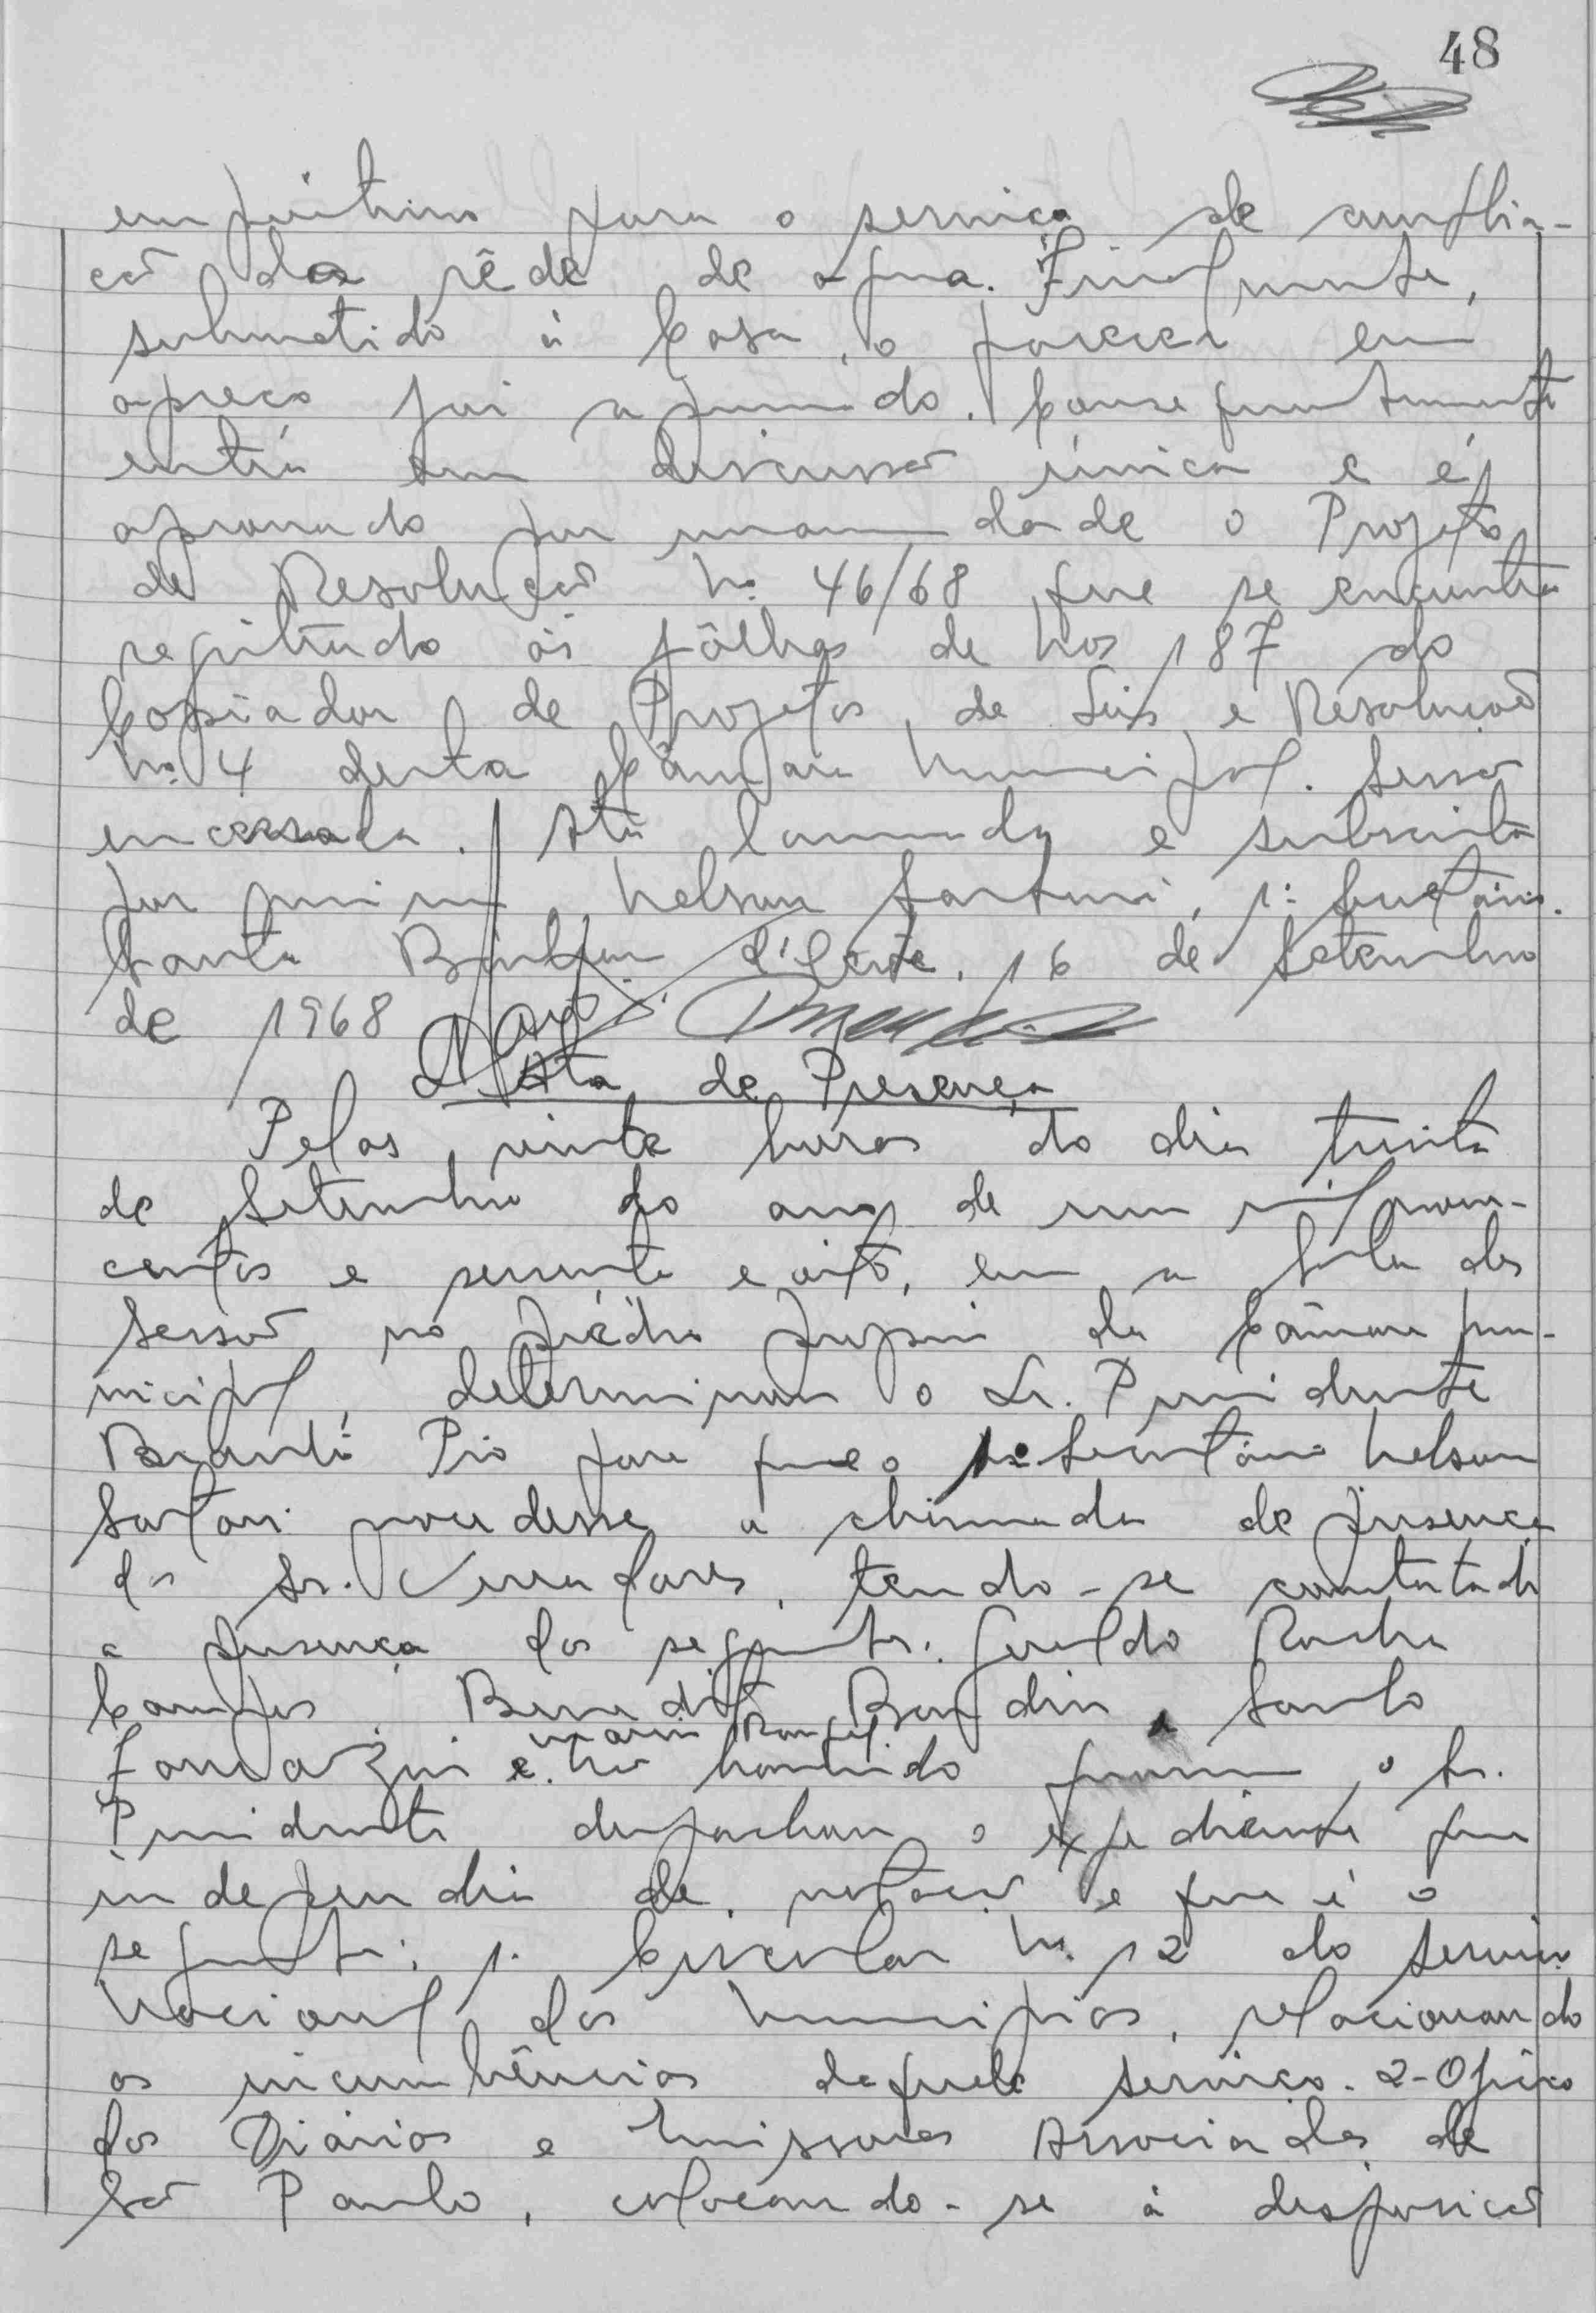 48
empréstimo para o serviço de amplia-
ção da rêde de agua. Finalmente,
submetido à Casa, o parecer em
apreço foi aprovado. Consequentemente
entra em discussão única e é
aprovado por unanimidade o Projeto
de Resolução No. 46/68 que se encontra
registrado às fôlhas de Nos 187 do
Copiador de Projetos de Leis e Resolução
No. 4 desta Câmara Municipal. Sessão
encerrada. Ata lavrada e subscrita
por mim Nelson Sartori, 1º Secretário.
Santa Bárbara d'Oeste, 16 de Setembro
de 1968
Ata de Presença
Pelas vinte horas do dia trinta
de Setembro do ano de um mil nove-
centos e sessenta e oito, em a Sala das
Sessão no prédio proprio da Câmara Mu-
nicipal, determinou o Sr. Presidente
Pio para que o 1º Secretário Nelson
Sartori procedesse a chamada de presença
dos Sr. Vereadores, tendo-se constatado
a presença dos seguintes: Geraldo Rocha
Campos, Benedito
e Não havendo quorum, o Sr.
Presidente despachou o expediente que
independia de votação e que é o
seguinte: 1. Circular No. 12 do Serviço
Nacional dos Municipios, relacionando
as incumbências daquele serviço. 2-Ofício
dos Diários e Emissoras Associadas de
São Paulo, colocando-se à disposição